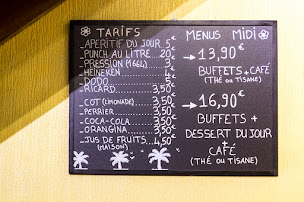 TARIFS
APERITIF DU JOUR 5€
PUNCH AU LITRE 20€
PRESSION (1664) 3€
HEINEKEN 4€
DODO
RICARD 3,50€
COT (LIMONADE) 3,50€
PERRIER 3,50€
COCA-COLA 3,50€
ORANGINA 3,50€
JUS DE FRUITS 4,50€
(MAISON)
MENUS MIDI
→ 13,90€
BUFFETS + CAFÉ
(THÉ OU TISANE)
→ 16,90€
BUFFETS +
DESSERT DU JOUR
+
CAFÉ
(THÉ OU TISANE)